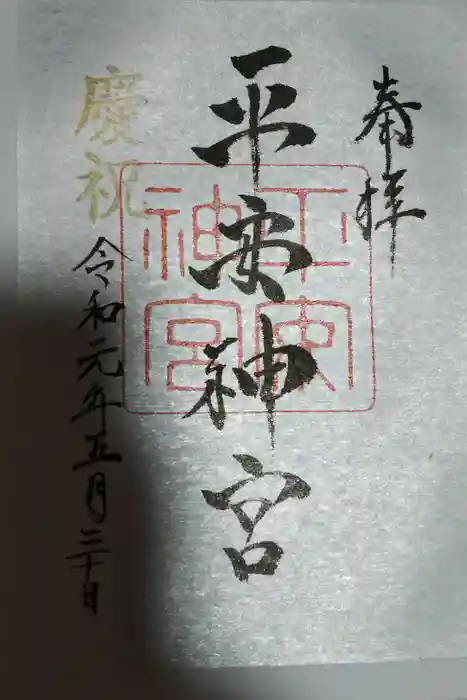 奉拝
平安神宮
慶祝
令和元年五月三十日
平安
神宮